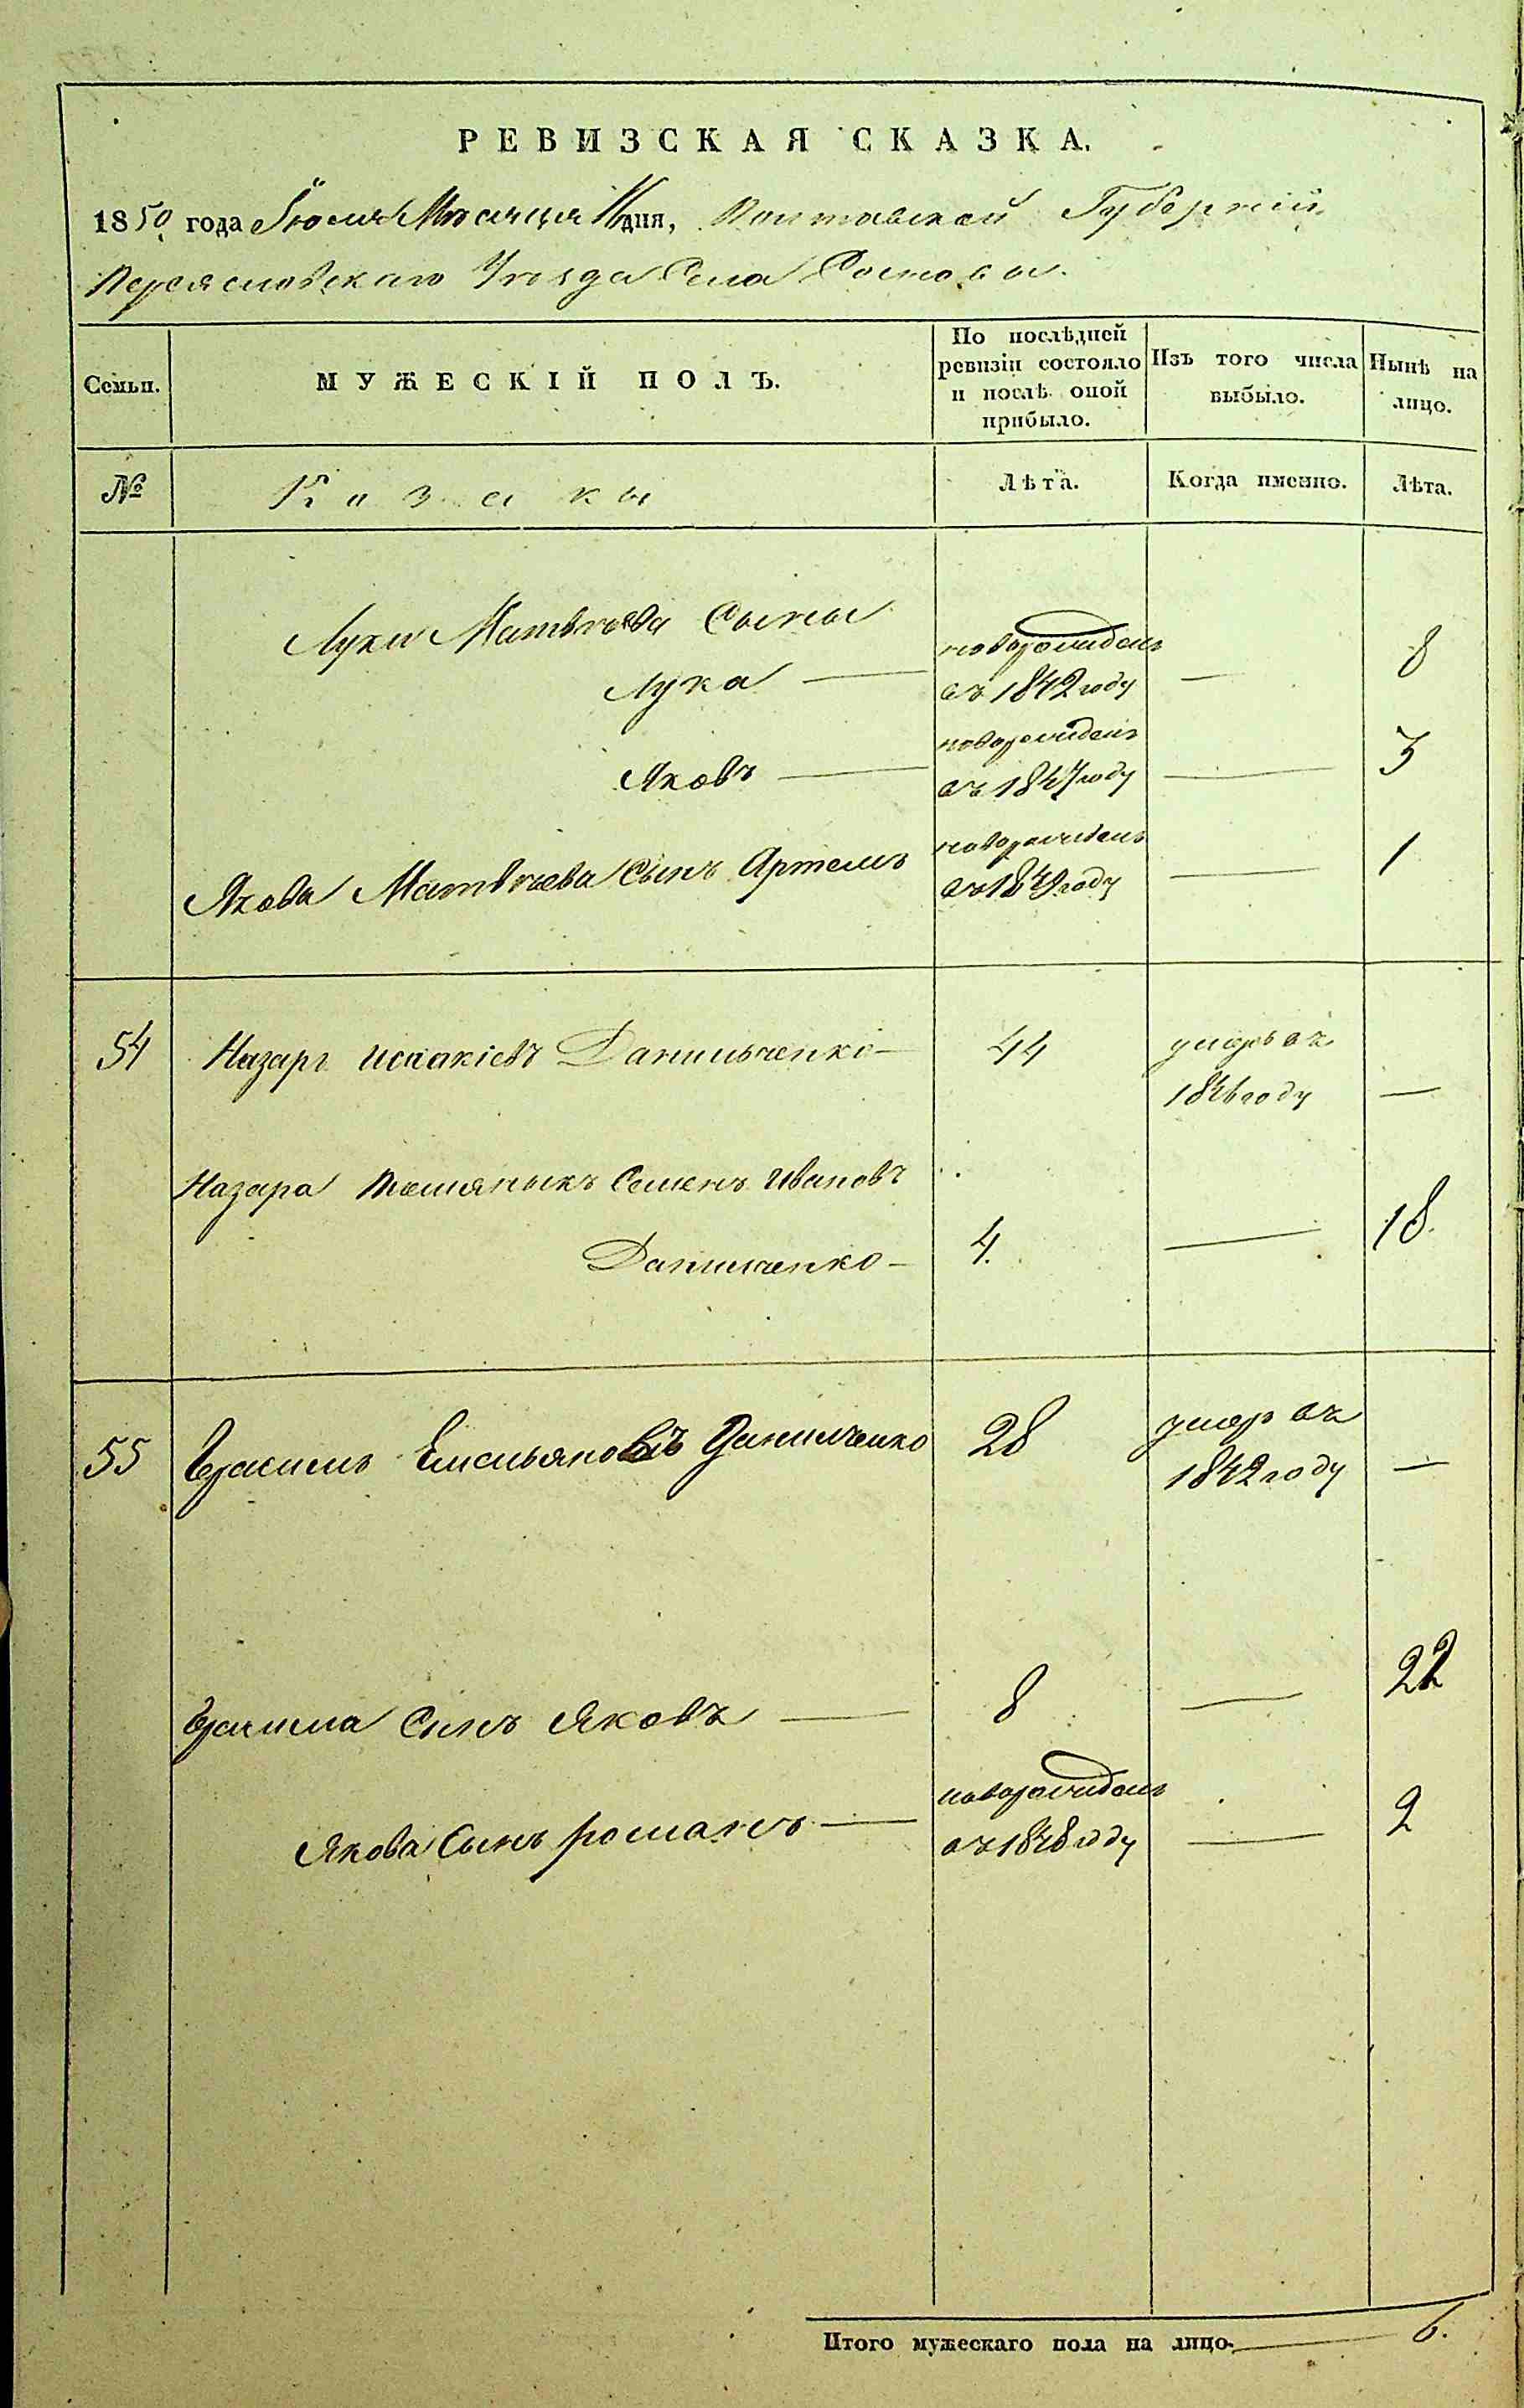 РЕВИЗСКАЯ СКАЗКА.
1850 года Іюля Мѣсяца 11 дня, Полтавской Губерніи,
Переяславскаго Уѣзда Села Сосновы.
Семьи.
МУЖЕСКІЙ ПОЛЪ.
По послѣдней
ревизіи состояло
и послѣ оной
прибыло.
Изъ того числа
выбыло.
Нынѣ на
лицо.
№
Казаки
Лѣта.
Когда именно.
Лѣта.
Луки Матвѣева Сыны
Лука — новорожденъ
въ 1842 году — 8
Яковъ — новорожденъ
въ 1847 году — 3
Якова Матвѣева Сынъ Артемъ новорожденъ
въ 1849 году — 1
54 Назаръ Исаакіевъ Данильченко — 44 умеръ въ
1846 году —
Назара племяникъ Семенъ Ивановъ
Данильченко — 4. — 18.
55 Герасимъ Емельяновъ Данильченко 28 умеръ въ
1842 году —
Герасима Сынъ Яковъ — 8 — 22
Якова Сынъ Романъ — новорожденъ
въ 1848 году — 2
Итого мужескаго пола на лицо. — 6.